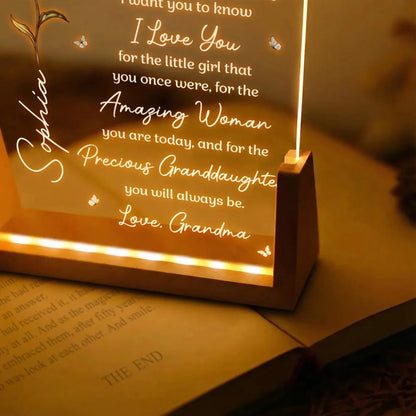 I want you to know
I Love You
for the little girl that
you once were, for the
Amazing Woman
you are today, and for the
Precious Granddaughte
you will always be.
Love, Grandma
Sophia
she had
an answer.
had received it. It had
And as the mag
after fifty year
embraced them,
was look at each other. And smile.
THE END